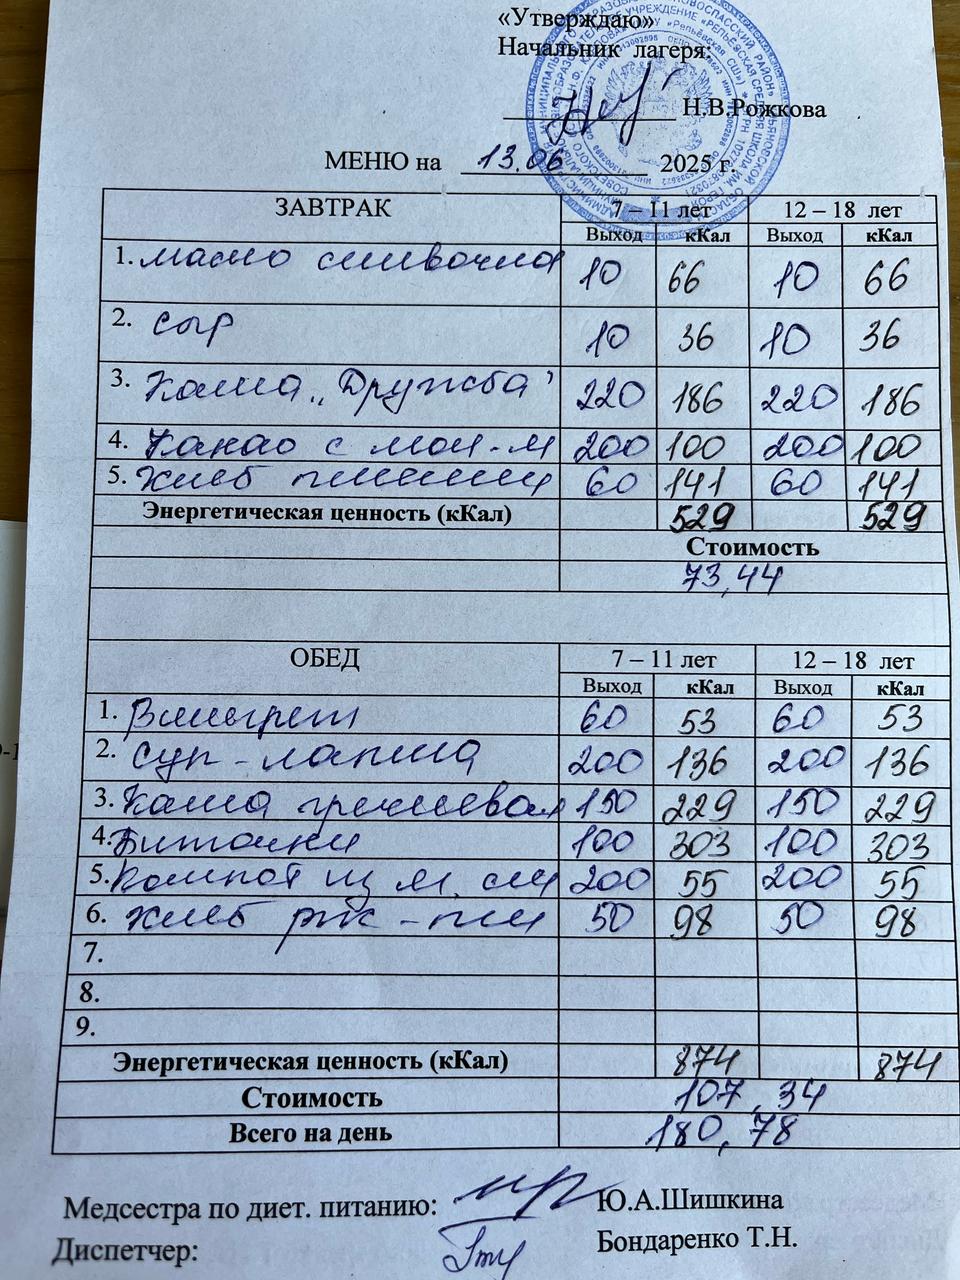 «Утверждаю»
Начальник лагеря:
Н.В.Рожкова
МЕНЮ на 13.06 2025 г.
ЗАВТРАК 7 – 11 лет 12 – 18 лет
Выход кКал Выход кКал
1. масло сливочное 10 66 10 66
2. сыр 10 36 10 36
3. Каша „Дружба" 220 186 220 186
4. Какао с мол-м 200 100 200 100
5. Хлеб пшеничн 60 141 60 141
Энергетическая ценность (кКал) 529 529
Стоимость
73,44
ОБЕД 7 – 11 лет 12 – 18 лет
Выход кКал Выход кКал
1. Винегрет 60 53 60 53
2. Суп-лапша 200 136 200 136
3. Каша гречневая 150 229 150 229
4. Биточки 100 303 100 303
5. Компот из 200 55 200 55
6. Хлеб рж-пш 50 98 50 98
7.
8.
9.
Энергетическая ценность (кКал) 874 874
Стоимость 107,34
Всего на день 180,78
Медсестра по диет. питанию: Ю.А.Шишкина
Диспетчер: Бондаренко Т.Н.